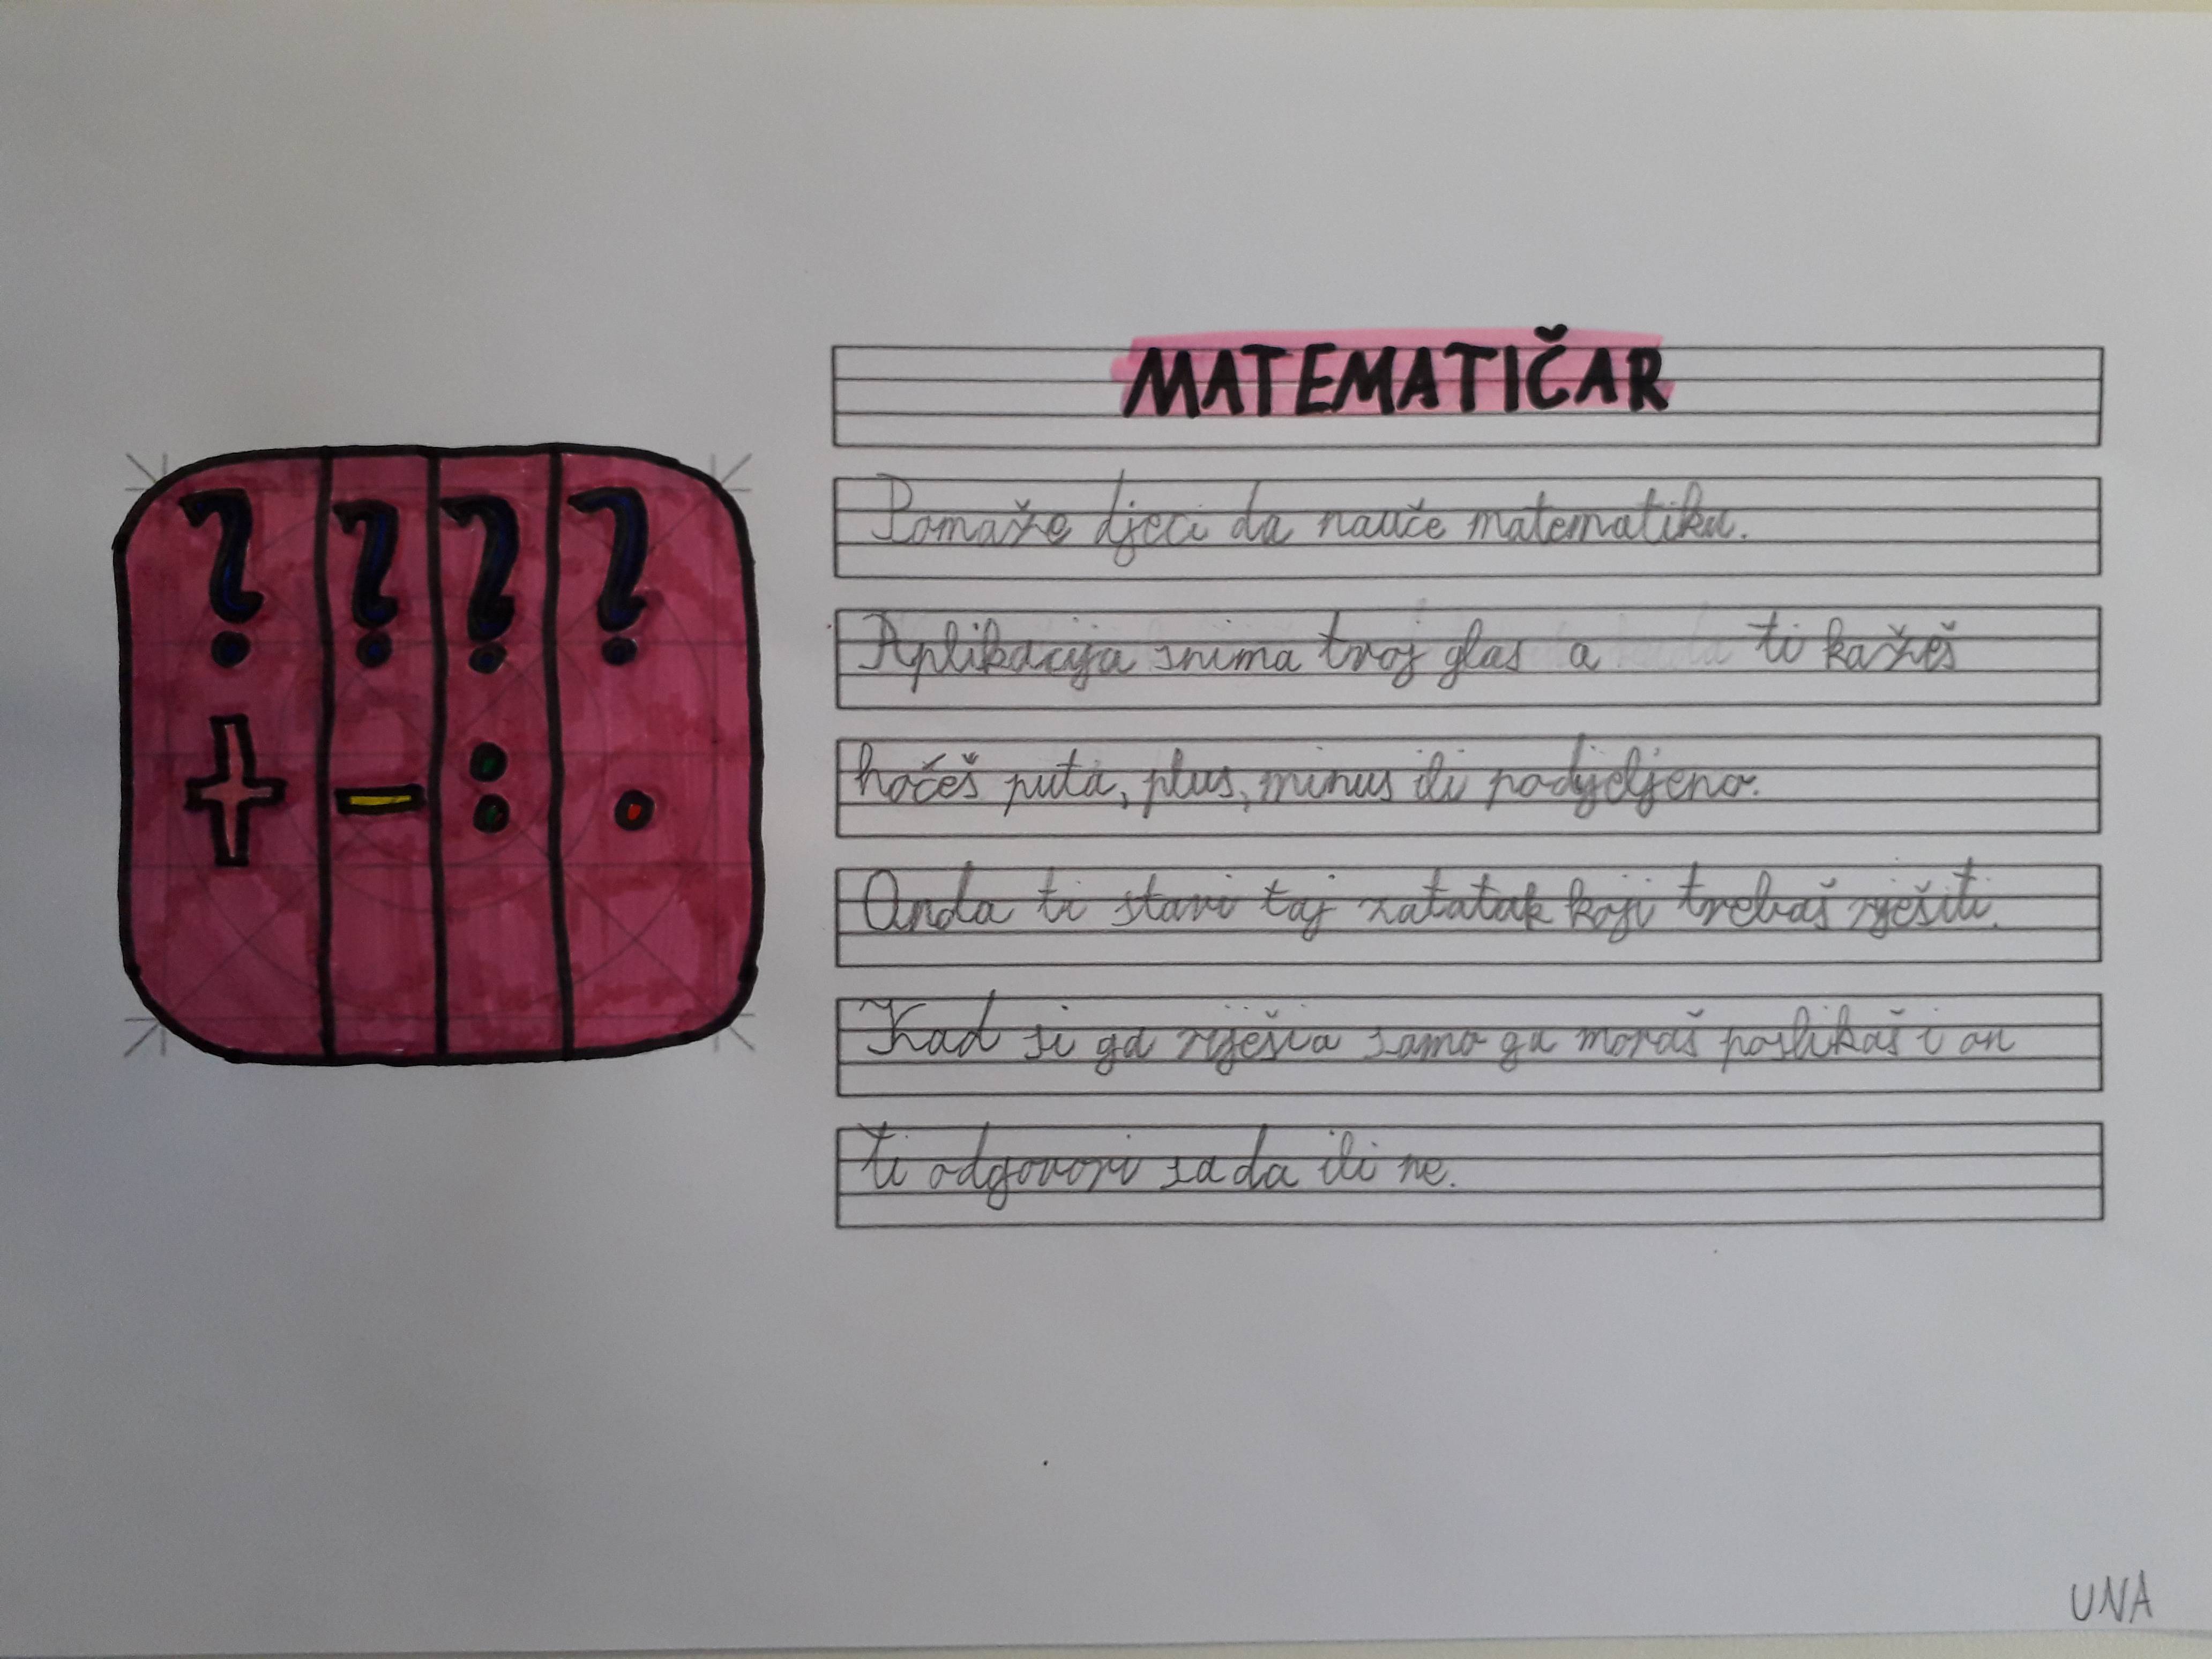 MATEMATIČAR
Pomaže djeci da nauče matematiku.
Aplikacija snima tvoj glas a ti kažeš
hočeš puta, plus, minus ili podjeljeno.
Onda ti stavi taj zatatak koji trebaš rješiti.
Kad si ga riješio samo ga moraš poslikaš i on
ti odgovori sa da ili ne.
? ? ? ?
+ - : ·
UNA